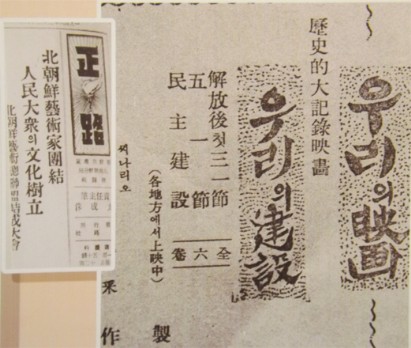 正路
北朝鮮藝術家團結
人民大衆의文化樹立
北朝鮮藝術總聯盟結成大會
우리의映画
歷史的大記錄映畵
우리의建設
解放後첫三一節
五一節
民主建設
全六卷
(各地方에서上映中)
씨나리오
製
作